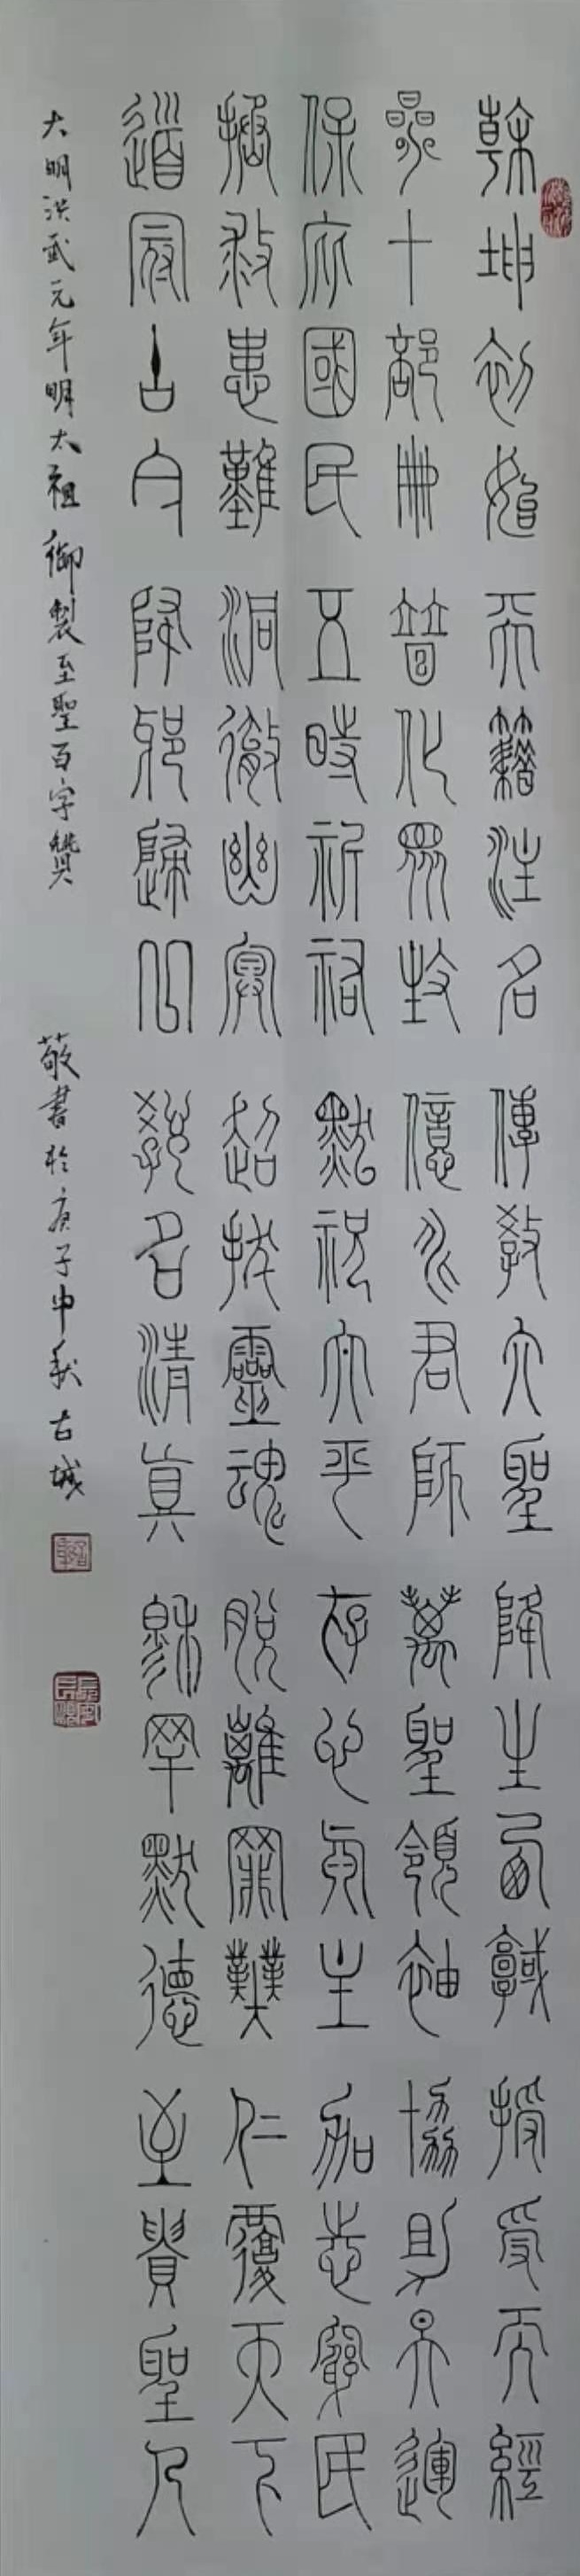 乾坤初始天籍注名傳教大聖降生西域授受天經
參十部冊普化眾億兆君師萬聖領袖協助天運
保庇國民五時祈祐默祝太平存心真主加志窮民
拯救患難洞徹幽冥超拔靈魂脫離罪業仁覆天下
道冠古今降邪歸教名清真穆罕默德至貴聖人
大明洪武元年明太祖御製至聖百字讚 敬書於庚子中秋古城